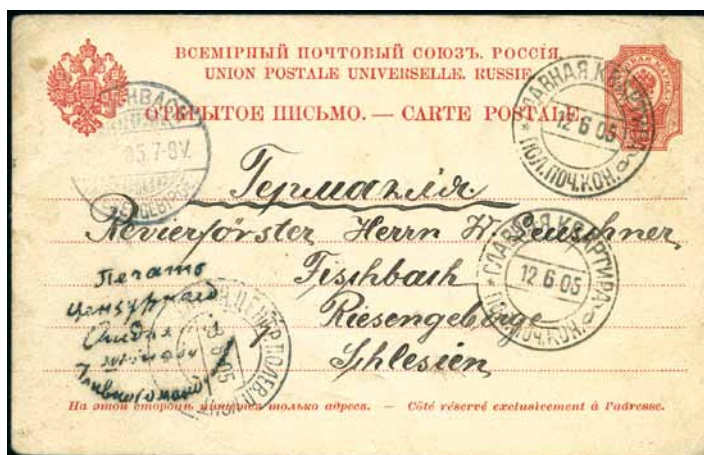 ВСЕМІРНЫЙ ПОЧТОВЫЙ СОЮЗЪ. РОССІЯ.
UNION POSTALE UNIVERSELLE. RUSSIE
ОТКРЫТОЕ ПИСЬМО. — CARTE POSTALE
ГЛАВНАЯ КВАРТИРА
12 6 05
ПОЛ.ПОЧ.КОН.
Германія.
Revierförster Herrn W. Leuschner
Fischbach
Riesengebirge
Schlesien
ГЛАВНАЯ КВАРТИРА
12 6 05
ПОЛ.ПОЧ.КОН.
Печать
цензурнаго
На этой сторонѣ пишется только адресъ. — Côté réservé exclusivement à l'adresse.